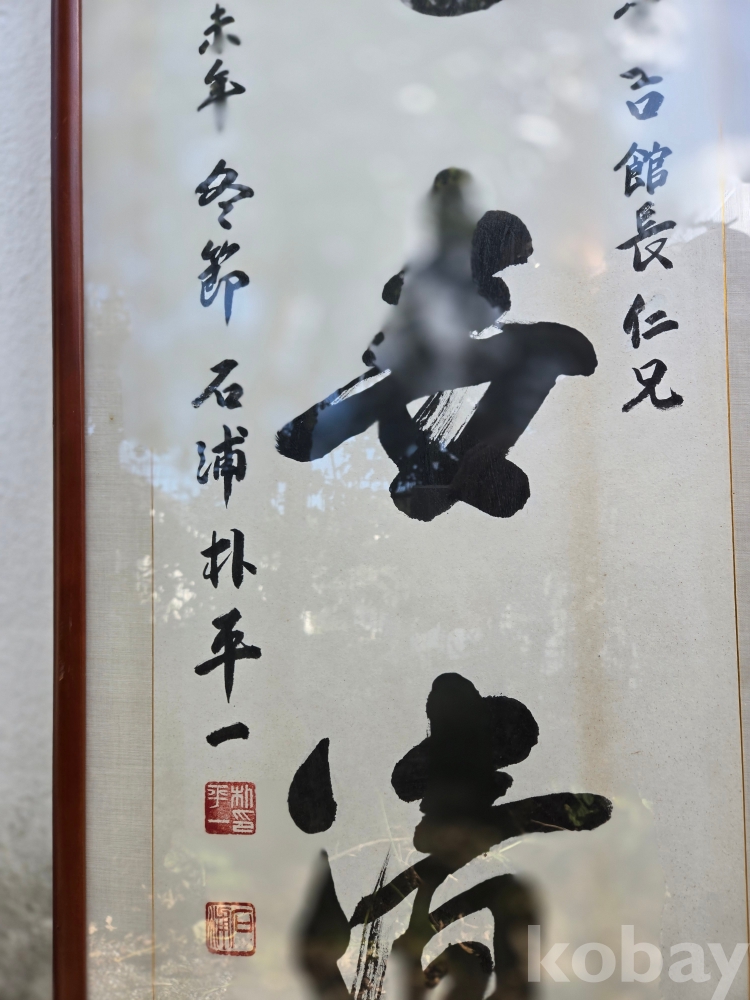 館長仁兄
清
未年 冬節 石浦 朴平一
朴印平一
石浦
kobay